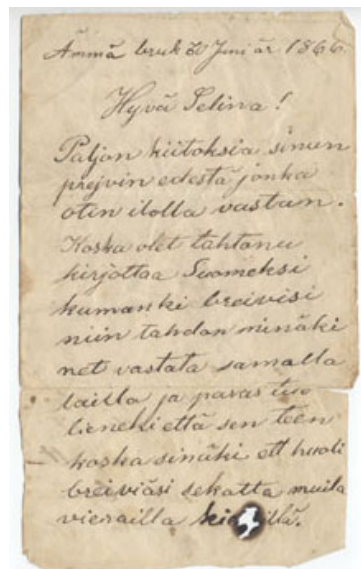 Ämmä bruk Juni år 1866.
Hyvä Selina!
Paljon kiitoksia sinun
prejvin edestä jonka
otin ilolla vastan.
Koska olet tahtanu
kirjottaa Suomeksi
kumanki breivisi
niin tahdon minäki
net vastata samalla
lailla ja paras tuo
lieneki että sen teen
koska sinäki ett huoli
breiviäsi sekatta muila
vierailla